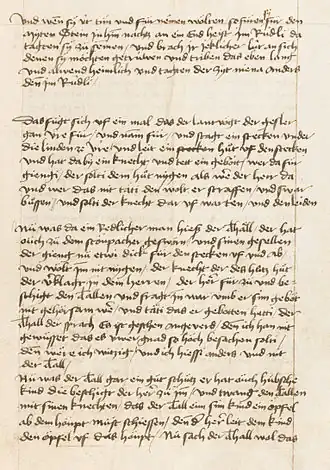 und wen sy üt tůn und für nemen wolten so fůren sy für den
myten stein inhin nachts an ein End heist im Rüdli da
tagten sy zů semen / und brach ir jetlicher lüt an sich
denen sy möchten getruwen und triben das eben lang
und alwend heimlich und tagten der zyt niena anders
den im Rüdli
Das fůgt sich uf ein mal das der lantvogt der gesler
gan ure fůr / und nam für / und stagt ein stecken under
die linden ze ure / und leit ein hůt uf den stecken
und hat da by ein knecht / und tett ein gebott / wer da für
giengi / der sölti dem hůt nygen als wer der herr da
und wer das nit täti den wölt er straffen / und swar
büssen / und sölti der knecht dar uf warten / und den leiden
Nů was da ein Redlicher man hieß der Thäll / der hat
ouch zů dem stoupacher gesworn / und sinen gesellen
der gieng nů etwi dick für den stecken uf und ab /
und wolt im nit nygen / der knecht der des hůtz hůt
der verklagt in dem herren / der herr fůr zů und be-
schigt den Tallen / und fragt in war umb er sim gebot
nit gehorsam wer / und täti das er gebotten hatti / der
Thall der sprach Es ist geschen an geverd / den ich han nit
gewüsset das es üwer gnad so höch besachen sölti /
den wer ich witzig / und ich hiessi anders / und nit
der Tall /
Nů was der Tall gar ein gůt schütz er hat ouch hübsche
kind die beschigt der herr zů im / und twang den Tallen
mit sinen knechten / das der Tall eim sim kind ein öpfel
ab dem höupt můst schiessen / den der herr leit dem kind
den öpfel uf das höupt / Nů sach der Thall wol das